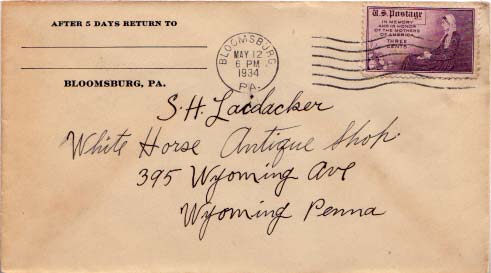 AFTER 5 DAYS RETURN TO
BLOOMSBURG, PA.
BLOOMSBURG,
MAY 12
6 PM
1934
PA.
U.S. Postage
IN MEMORY
AND IN HONOR
OF THE MOTHERS
OF AMERICA
THREE
CENTS
S. H. Laidacker
White Horse Antique Shop.
395 Wyoming Ave
Wyoming Penna